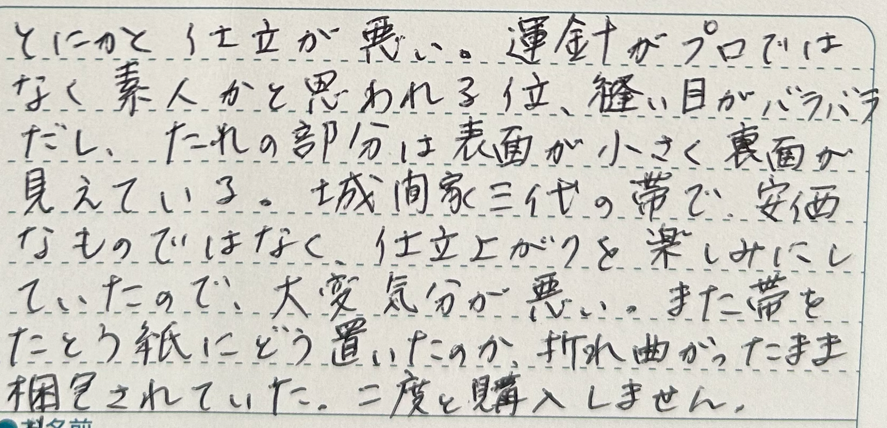 とにかく仕立が悪い。運針がプロでは
なく素人かと思われる位、縫い目がバラバラ
だし、たれの部分は表面が小さく裏面が
見えている。城間家三代の帯で、安価
なものではなく、仕立上がりを楽しみにし
ていたので、大変気分が悪い。また帯を
たとう紙にどう置いたのか、折れ曲がったまま
梱包されていた。二度と購入しません。
名前